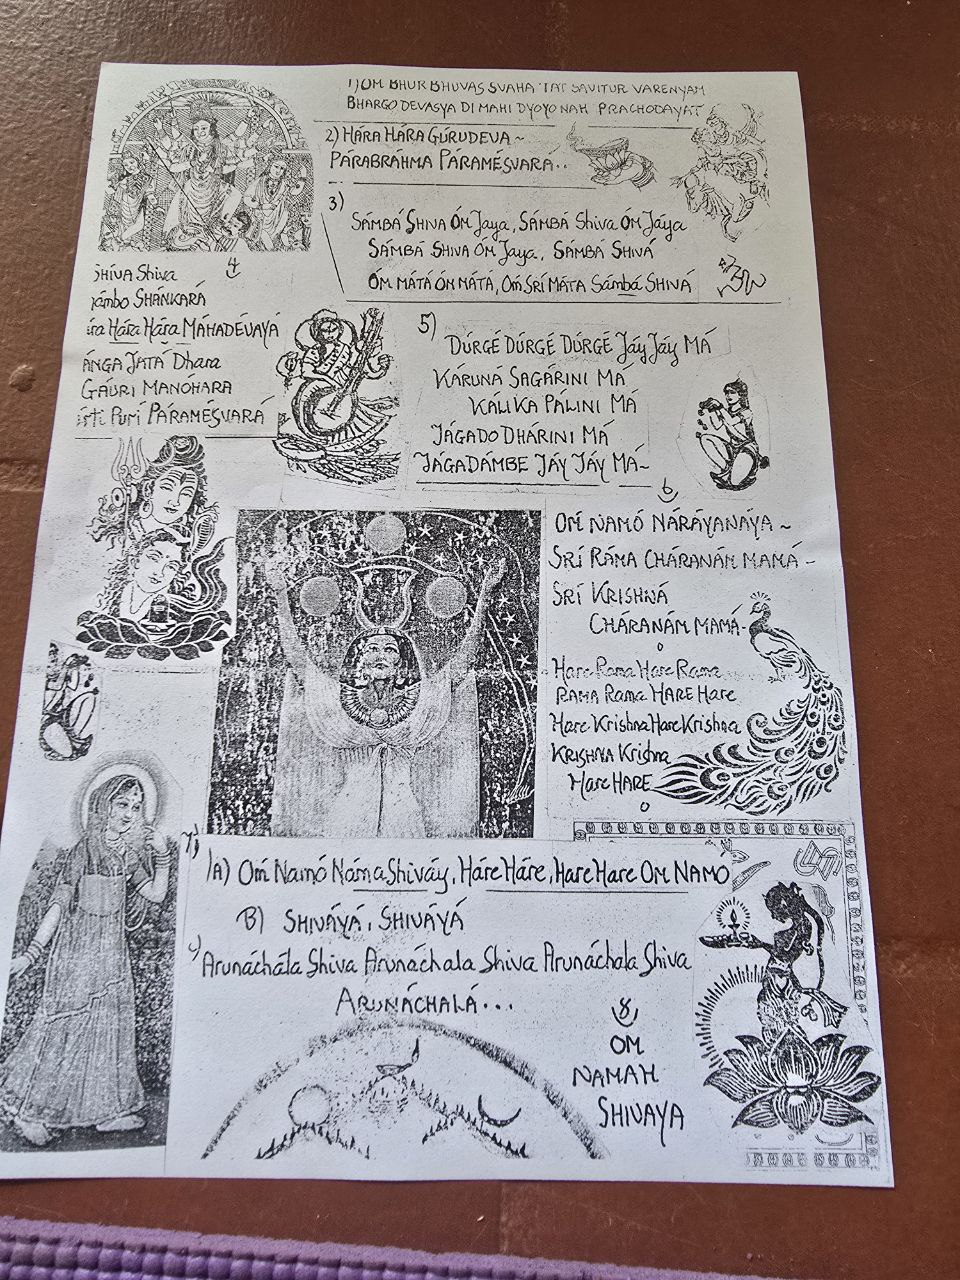 1) OM BHUR BHUVAS SVAHA TAT SAVITUR VARENYAM
BHARGO DEVASYA DI MAHI DYOYO NAH PRACHODAYAT
2) HÁRA HÁRA GÚRUDEVA~
PÁRABRÁHMA PÁRAMÉSVARA..
3)
SÁMBÁ SHIVA ÓM Jaya, SÁMBÁ Shiva ÓM Jáya
SÁMBÁ SHIVA ÓM Jaya, SÁMBÁ SHIVÁ
ÓM MÁTÁ ÓM MÁTÁ, Óm SRÍ MÁTA Sámbá SHIVÁ
4
SHIVA Shiva
ámbo SHÁNKARÁ
ra Hára Hára MÁHADÉVAYÁ
ÁNGA JATÁ Dhara
GAÚRI MANÓHARA
irti Purí PÁRAMÉSVARÁ
5)
DÚRGÉ DÚRGÉ DÚRGÉ Jáy Jáy MÁ
KÁRUNÁ SAGÁRINI MÁ
KÁLI KA PÁLINI MÁ
JÁGADO DHÁRINI MÁ
JÁGADÁMBE JÁY JÁY MÁ~
6
OM NAMÓ NÁRÁYANÁYA ~
SRÍ RÁMA CHÁRANÁM MAMÁ -
SRÍ KRISHNÁ
CHÁRANÁM MAMÁ-
Hare Rama Hare Rama
RAMA Rama HARE Hare
Hare Krishna Hare Krishna
KRISHNA Krishna
Hare HARE
7)
A) Om Namó NámaShiváy, Háre Háre, Hare Hare OM NAMO
B) SHIVÁYÁ, SHIVÁYÁ
Arunáchála Shiva Arunáchala Shiva Arunáchala Shiva
ARUNÁCHALÁ...
8
OM
NAMAH
SHIVAYA